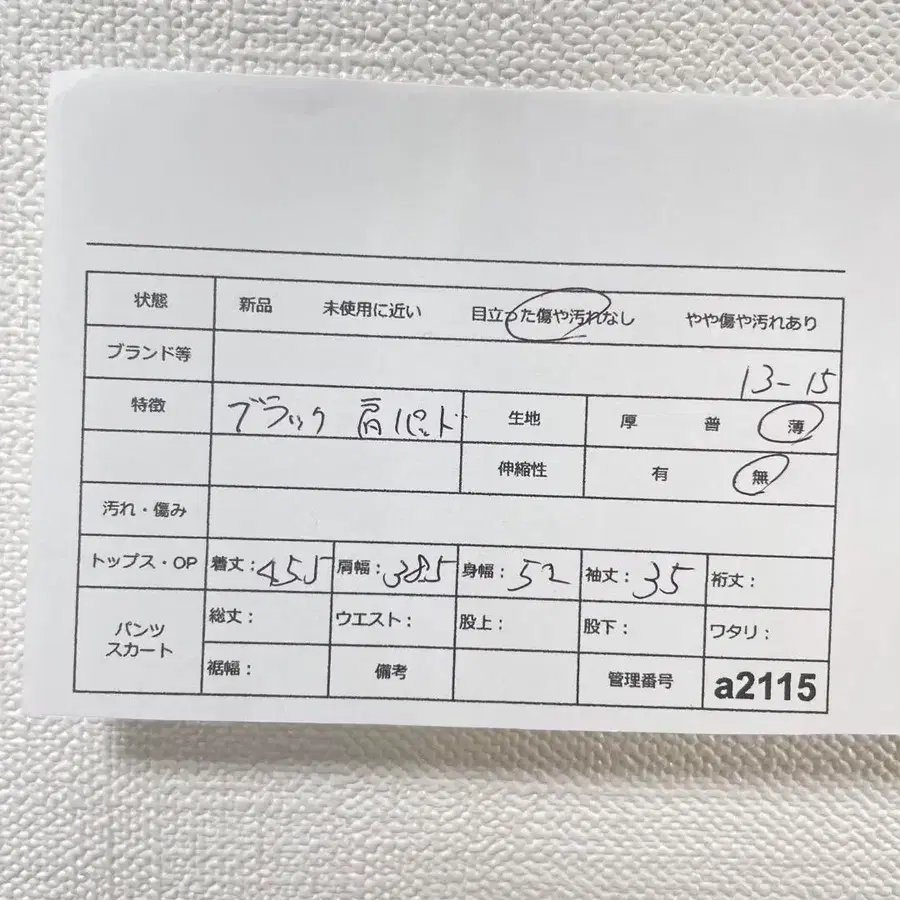 状態 新品 未使用に近い 目立った傷や汚れなし やや傷や汚れあり
ブランド等 13-15
特徴 ブラック 肩パッド 生地 厚 普 薄
伸縮性 有 無
汚れ・傷み
トップス・OP 着丈:45.5 肩幅:38.5 身幅:52 袖丈:35 裄丈:
パンツ スカート 総丈: ウエスト: 股上: 股下: ワタリ:
裾幅: 備考 管理番号 a2115